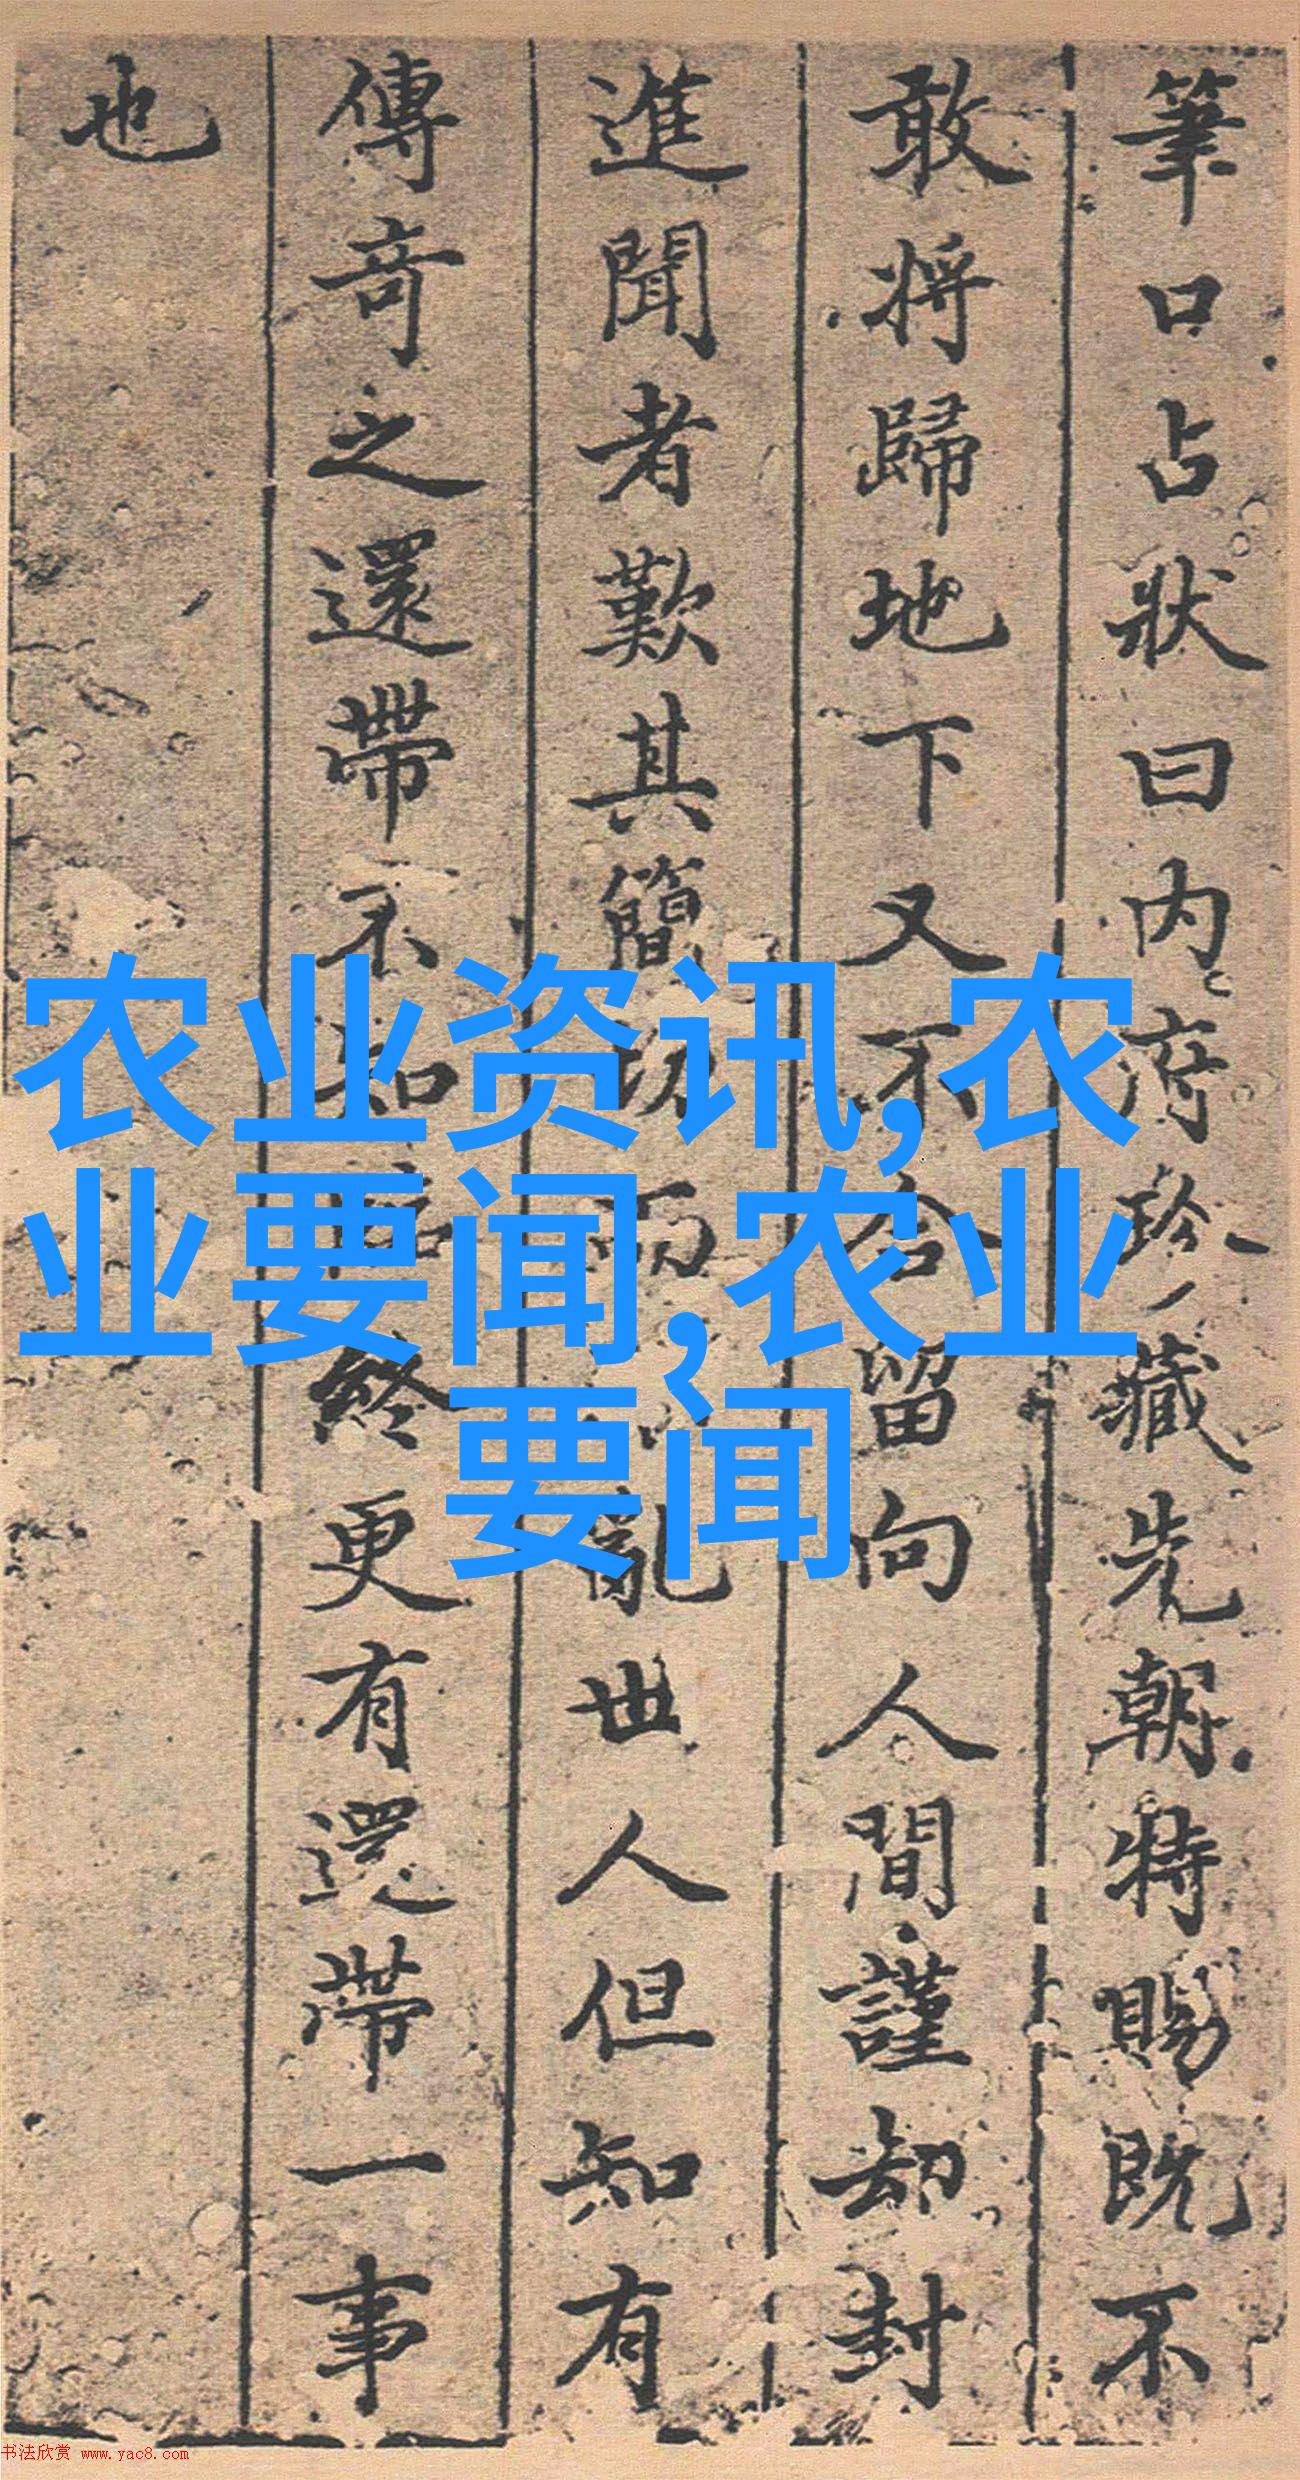 筆口占狀曰内府珍藏先朝特賜既不
敢將歸地下又不合留向人間謹却封
進聞者歎其簡切而不亂世人但知有
傳奇之還帶不知 終更有還帶一事
也
农业资讯,农
业要闻,农业
要闻
书法欣赏 www.yac8.com